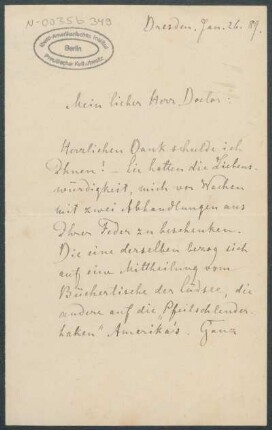 N-0035 b 349
Ibero-Amerikanisches Institut
Berlin
Preußischer Kulturbesitz
Dresden, Jan. 26. 87.
Mein lieber Herr Doctor!
Herzlichen Dank schulde ich
Ihnen! – Sie hatten die Liebens-
würdigkeit, mich vor Wochen
mit zwei Abhandlungen aus
Ihrer Feder zu beschenken.
Die eine derselben bezog sich
auf eine Mittheilung vom
Büchertische der Südsee, die
andere auf die „Pfeilschleuder-
haken" Amerika's. Ganz